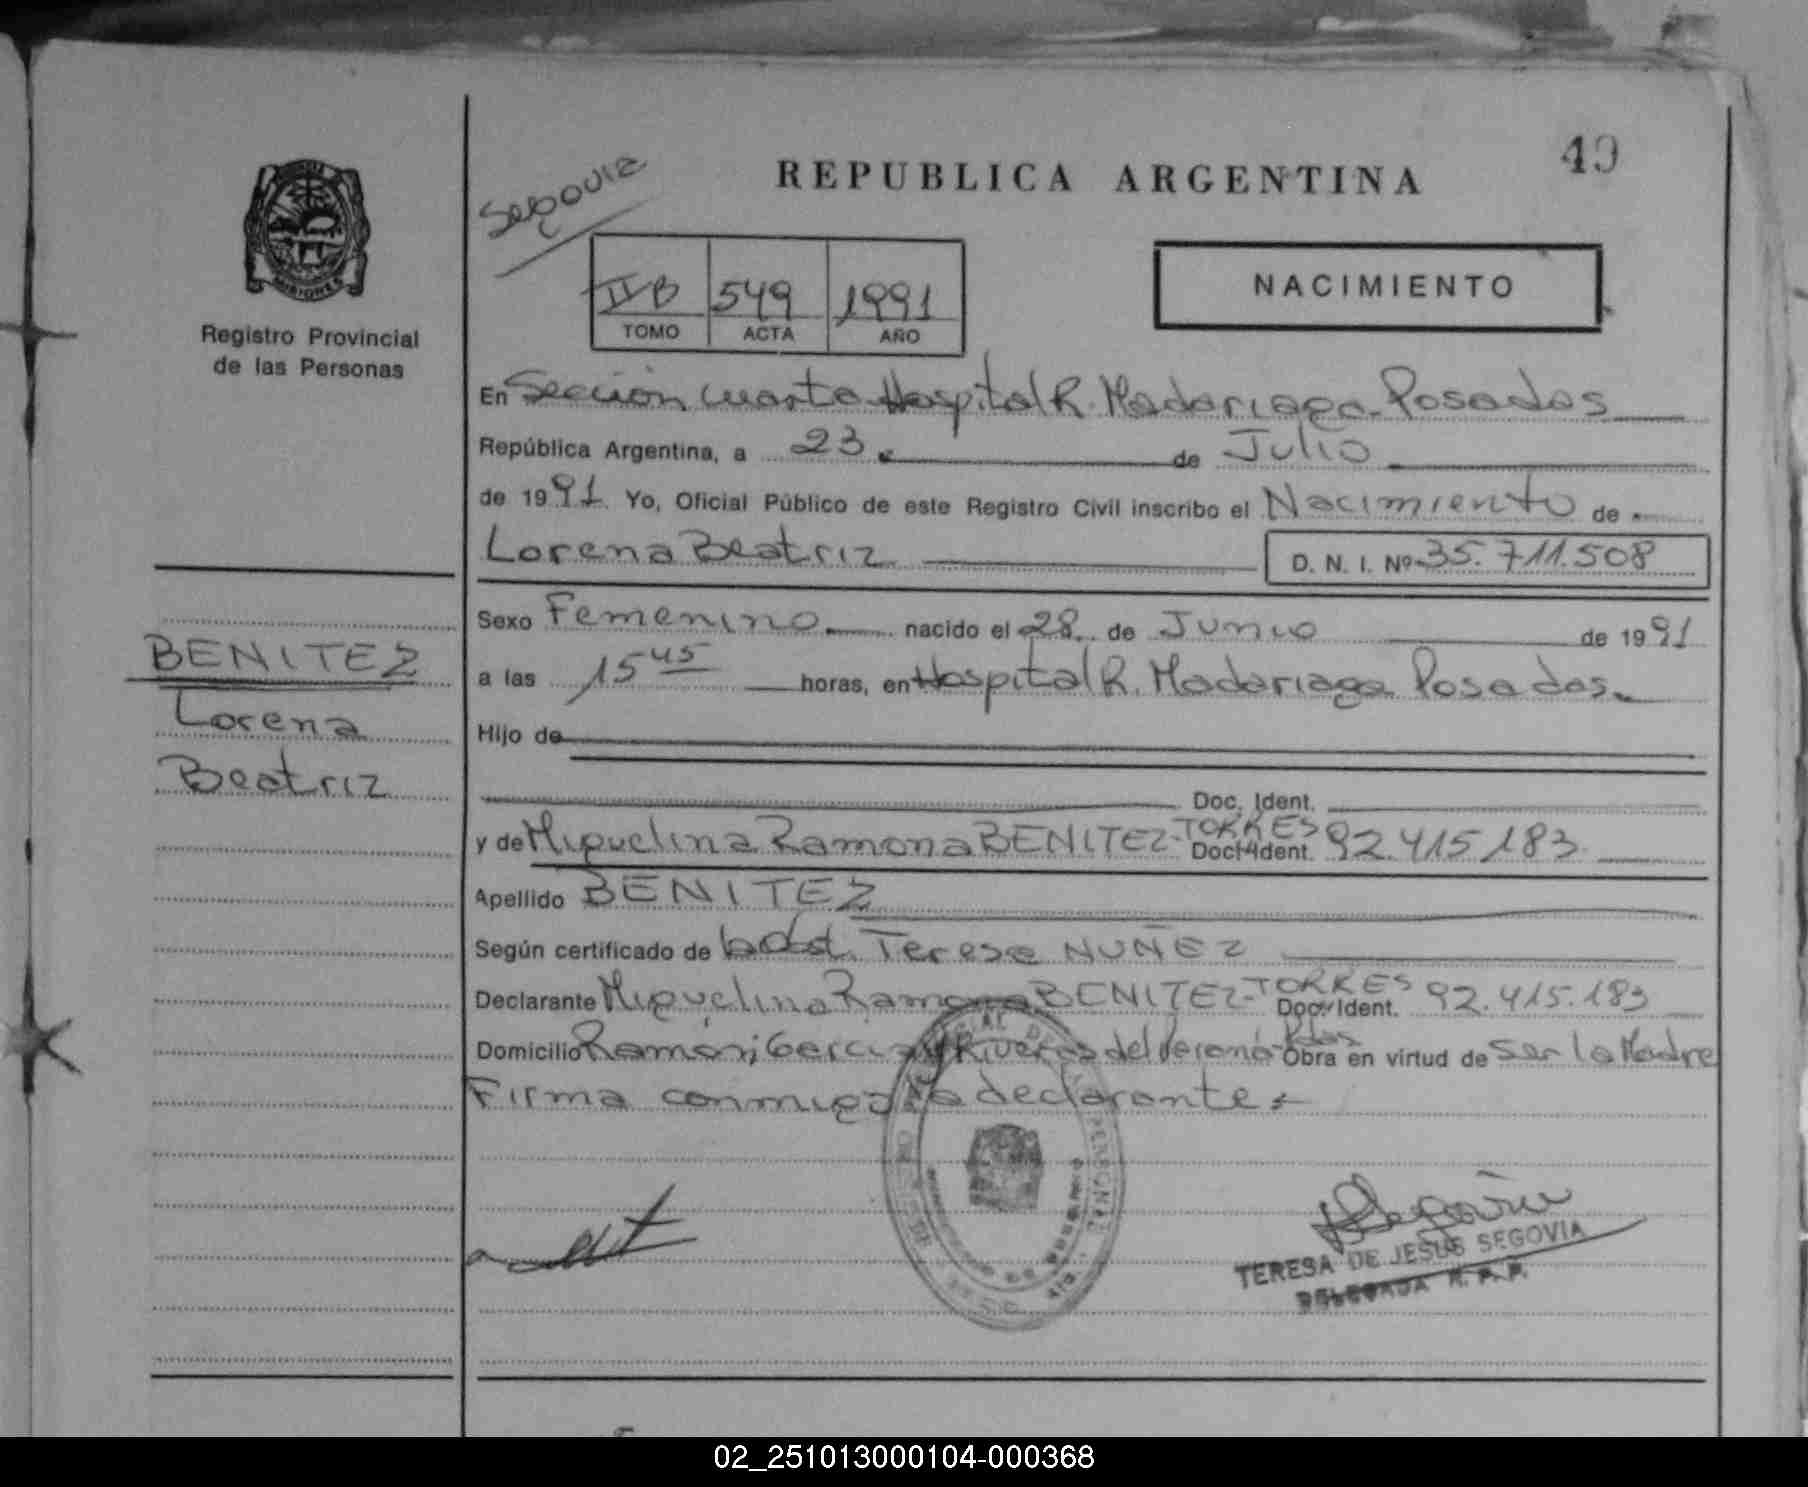 49
REPUBLICA ARGENTINA
Segovia
MISIONES
Registro Provincial
de las Personas
II B 549 1991
TOMO ACTA AÑO
NACIMIENTO
En Sección Cuarta Hospital R. Madariaga - Posadas
República Argentina, a 23 de Julio
de 1991 Yo, Oficial Público de este Registro Civil inscribo el Nacimiento de
Lorena Beatriz D. N. I. Nº 35.711.508
Sexo Femenino nacido el 28 de Junio de 1991
BENITEZ
Lorena
Beatriz
a las 15 45 horas, en Hospital R. Madariaga Posadas
Hijo de
Doc. Ident.
y de Miguelina Ramona BENITEZ-TORRES Doc. Ident. 92.415.183
Apellido BENITEZ
Según certificado de Obst. Teresa NUÑEZ
Declarante Miguelina Ramona BENITEZ-TORRES Doc. Ident. 92.415.183
Domicilio Ramón García y Riveras del Paraná - Pdas Obra en virtud de Ser la Madre
Firma conmigo la declarante
TERESA DE JESUS SEGOVIA
DELEGADA R. P. P.
02_251013000104-000368